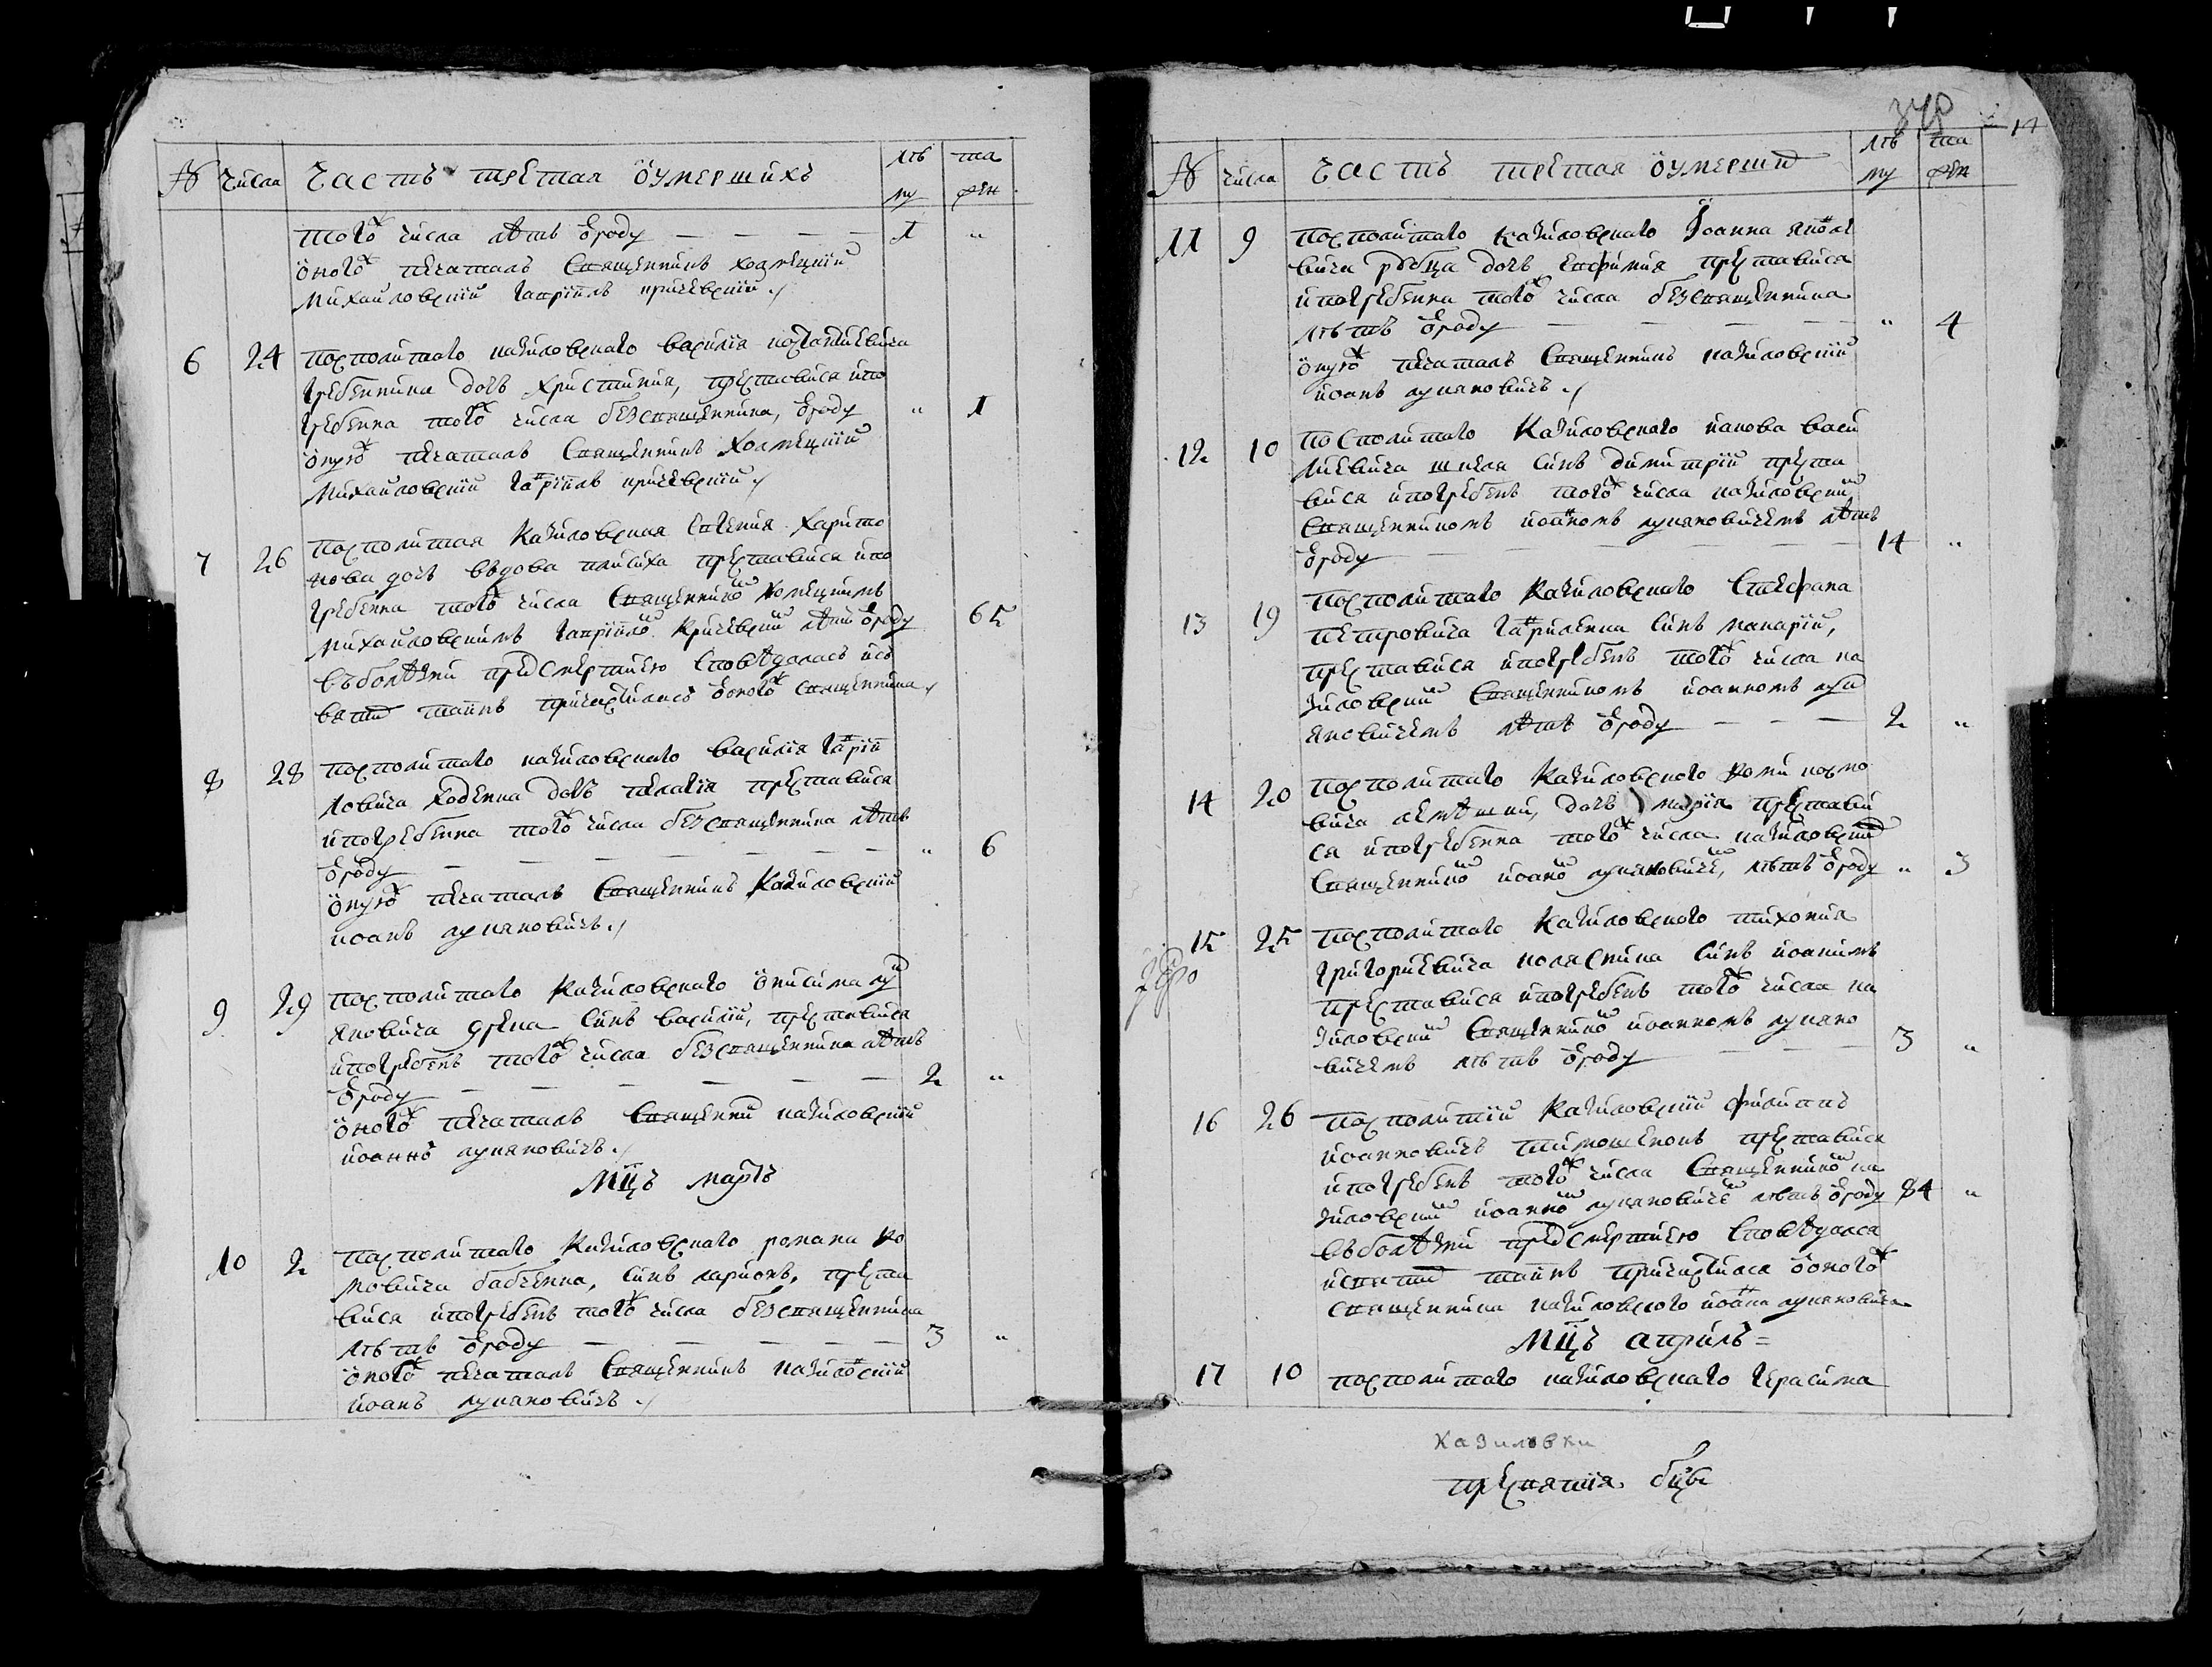 № числа Часть третая оумершихъ лѣ та
му жен
того числа лѣтъ ѿроду 1 "
оного печаталъ Священникъ холмецкїй
Михайловскїй Гавріилъ кричевскїй
6 24 посполитаго казиловскаго василія
Гребенника дочъ христинія, преставися ипо
гребенна того числа безсвященника, ѿроду " 1
оную печаталъ Священникъ Холмецкїй
Михайловскїй Гавріилъ кричевскїй
7 26 посполитая казиловская Евгенія харито
нова дочъ вѣдова преставися ипо
гребенна того числа Священникомъ холмецкимъ
михайловскимъ Гавріиломъ кричевским лѣтъ ѿроду 65
въболѣзни предсмертнею сповѣдалась исъ
вятих таинъ причастилась ѿоного священника
8 28 посполитаго казиловскаго василія Гавріи
ловича ходенка дочъ пелагія преставися
ипогребенна того числа безсвященника лѣтъ
ѿроду " 6
оную печаталъ Священникъ казиловскїй
иоанъ лукяновичъ
9 29 посполитаго казиловскаго онисима лук
яновича сынъ василій, преставися
ипогребенъ того числа безсвященника лѣтъ
ѿроду 2 "
оного печаталъ Священник казиловскїй
иоаннъ лукяновичъ
Мцъ мартъ
10 2 посполитаго казиловскаго романа ко
новича бабченка, сынъ ларионъ, преста
вися ипогребенъ того числа безсвященника
лѣтъ ѿроду 3 "
оного печаталъ Священникъ казиловскїй
иоанъ лукяновичъ
№ числа Часть третая оумерших лѣ та
му жен
11 9 посполитаго казиловскаго Іоанна
вича дочъ евфимія преставися
ипогребенна того числа безсвященника
лѣтъ ѿроду " 4
оную печаталъ Священникъ казиловскїй
иоанъ лукяновичъ
12 10 посполитаго казиловскаго иакова васи
лиевича сынъ димитрій преста
вися ипогребенъ того числа казиловским
Священникомъ иоанномъ лукяновичемъ лѣтъ
ѿроду 14 "
13 19 посполитаго казиловскаго Стефана
петровича Гавриленка сынъ макарій,
преставися ипогребенъ того числа ка
зиловским Священникомъ иоанномъ лук
яновичемъ лѣтъ ѿроду 2 "
14 20 посполитаго казиловского
вича дочъ марія престави
ся ипогребенна того числа казиловским
Священником иоаном лукяновичем, лѣтъ ѿроду " 3
15 25 посполитаго казиловского тихонія
григориевича сынъ иоакимъ
преставися ипогребенъ того числа ка
зиловским Священником иоанномъ лукяно
вичемъ лѣтъ ѿроду 3 "
16 26 посполитїй казиловскїй филиппъ
иоанновичъ тимошенокъ преставися
ипогребенъ того числа Священником ка
зиловским иоанном лукяновичем лѣтъ ѿроду 84 "
въболѣзни предсмертнею сповѣдался
исвятих таинъ причастился ѿоного
священника казиловского иоанна лукяновича
Мцъ априлъ =
17 10 посполитаго казиловскаго герасима
казиловки